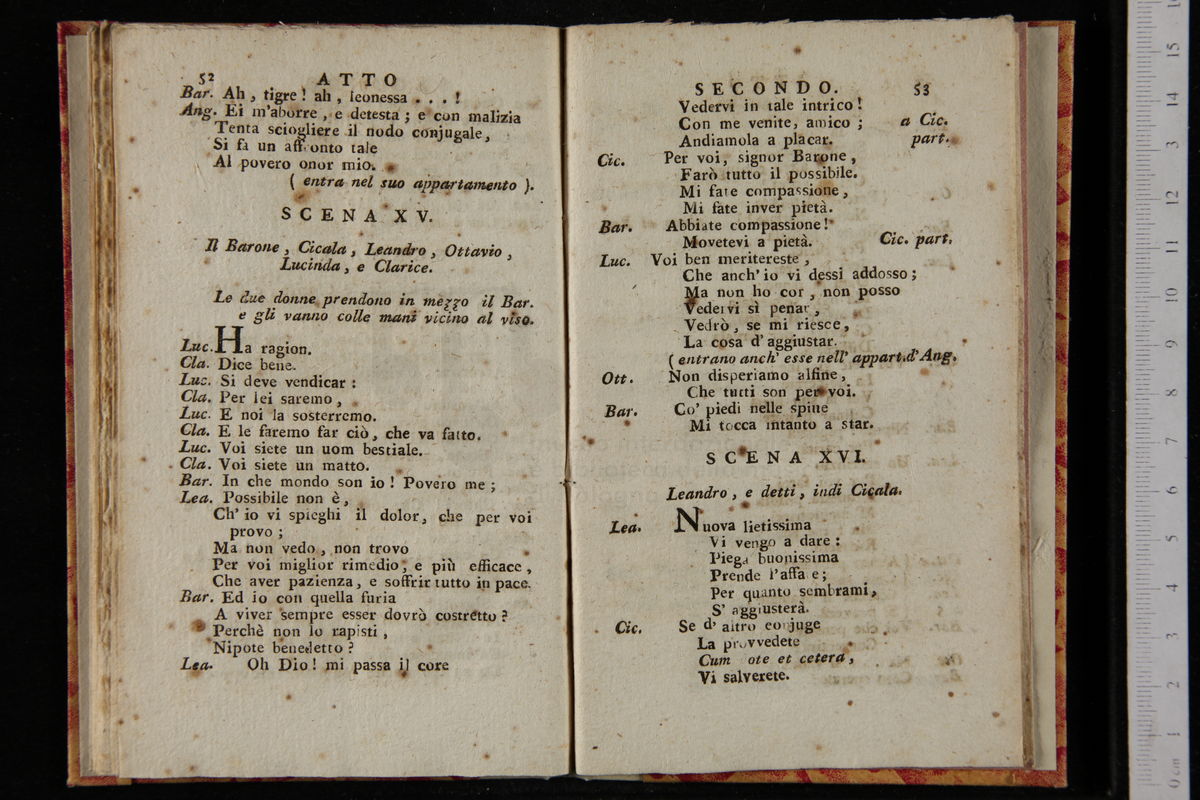 52 ATTO
Bar. Ah, tigre! ah, leonessa . . . !
Ang. Ei m'aborre, e detesta; e con malizia
Tenta sciogliere il nodo conjugale,
Si fa un affronto tale
Al povero onor mio.
( entra nel suo appartamento ).
SCENA XV.
Il Barone, Cicala, Leandro, Ottavio,
Lucinda, e Clarice.
Le due donne prendono in mezzo il Bar.
e gli vanno colle mani vicino al viso.
Luc. Ha ragion.
Cla. Dice bene.
Luc. Si deve vendicar:
Cla. Per lei saremo,
Luc. E noi la sosterremo.
Cla. E le faremo far ciò, che va fatto.
Luc. Voi siete un uom bestiale.
Cla. Voi siete un matto.
Bar. In che mondo son io! Povero me;
Lea. Possibile non è,
Ch'io vi spieghi il dolor, che per voi
provo;
Ma non vedo, non trovo
Per voi miglior rimedio, e più efficace,
Che aver pazienza, e soffrir tutto in pace.
Bar. Ed io con quella furia
A viver sempre esser dovrò costretto?
Perchè non lo rapisti,
Nipote benedetto?
Lea. Oh Dio! mi passa il core
SECONDO. 53
Vedervi in tale intrico!
Con me venite, amico; a Cic.
Andiamola a placar. part.
Cic. Per voi, signor Barone,
Farò tutto il possibile.
Mi fate compassione,
Mi fate inver pietà.
Bar. Abbiate compassione!
Movetevi a pietà. Cic. part.
Luc. Voi ben meritereste,
Che anch'io vi dessi addosso;
Ma non ho cor, non posso
Vedervi sì penar,
Vedrò, se mi riesce,
La cosa d'aggiustar.
( entrano anch' esse nell' appart. d'Ang.
Ott. Non disperiamo alfine,
Che tutti son per voi.
Bar. Co' piedi nelle spine
Mi tocca intanto a star.
SCENA XVI.
Leandro, e detti, indi Cicala.
Lea. Nuova lietissima
Vi vengo a dare:
Piega buonissima
Prende l'affa e;
Per quanto sembrami,
S' aggiusterà.
Cic. Se d' altro conjuge
La provvedete
Cum ote et cetera,
Vi salverete.